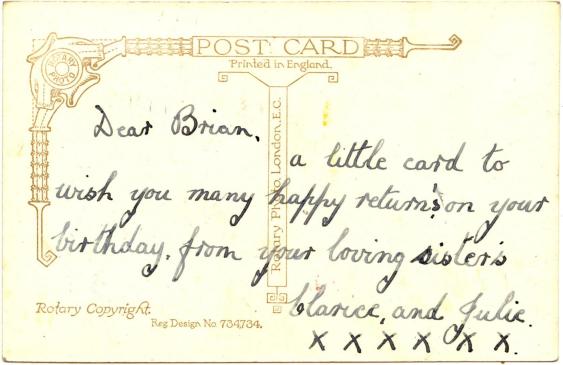 POST CARD
Printed in England.
ROTARY PHOTO
Rotary Photo, London, E.C.
Dear Brian,
a little card to
wish you many happy return's on your
birthday, from your loving sister's
Clarice, and Julie.
X X X X X X.
Rotary Copyright.
Reg Design No. 734,734.